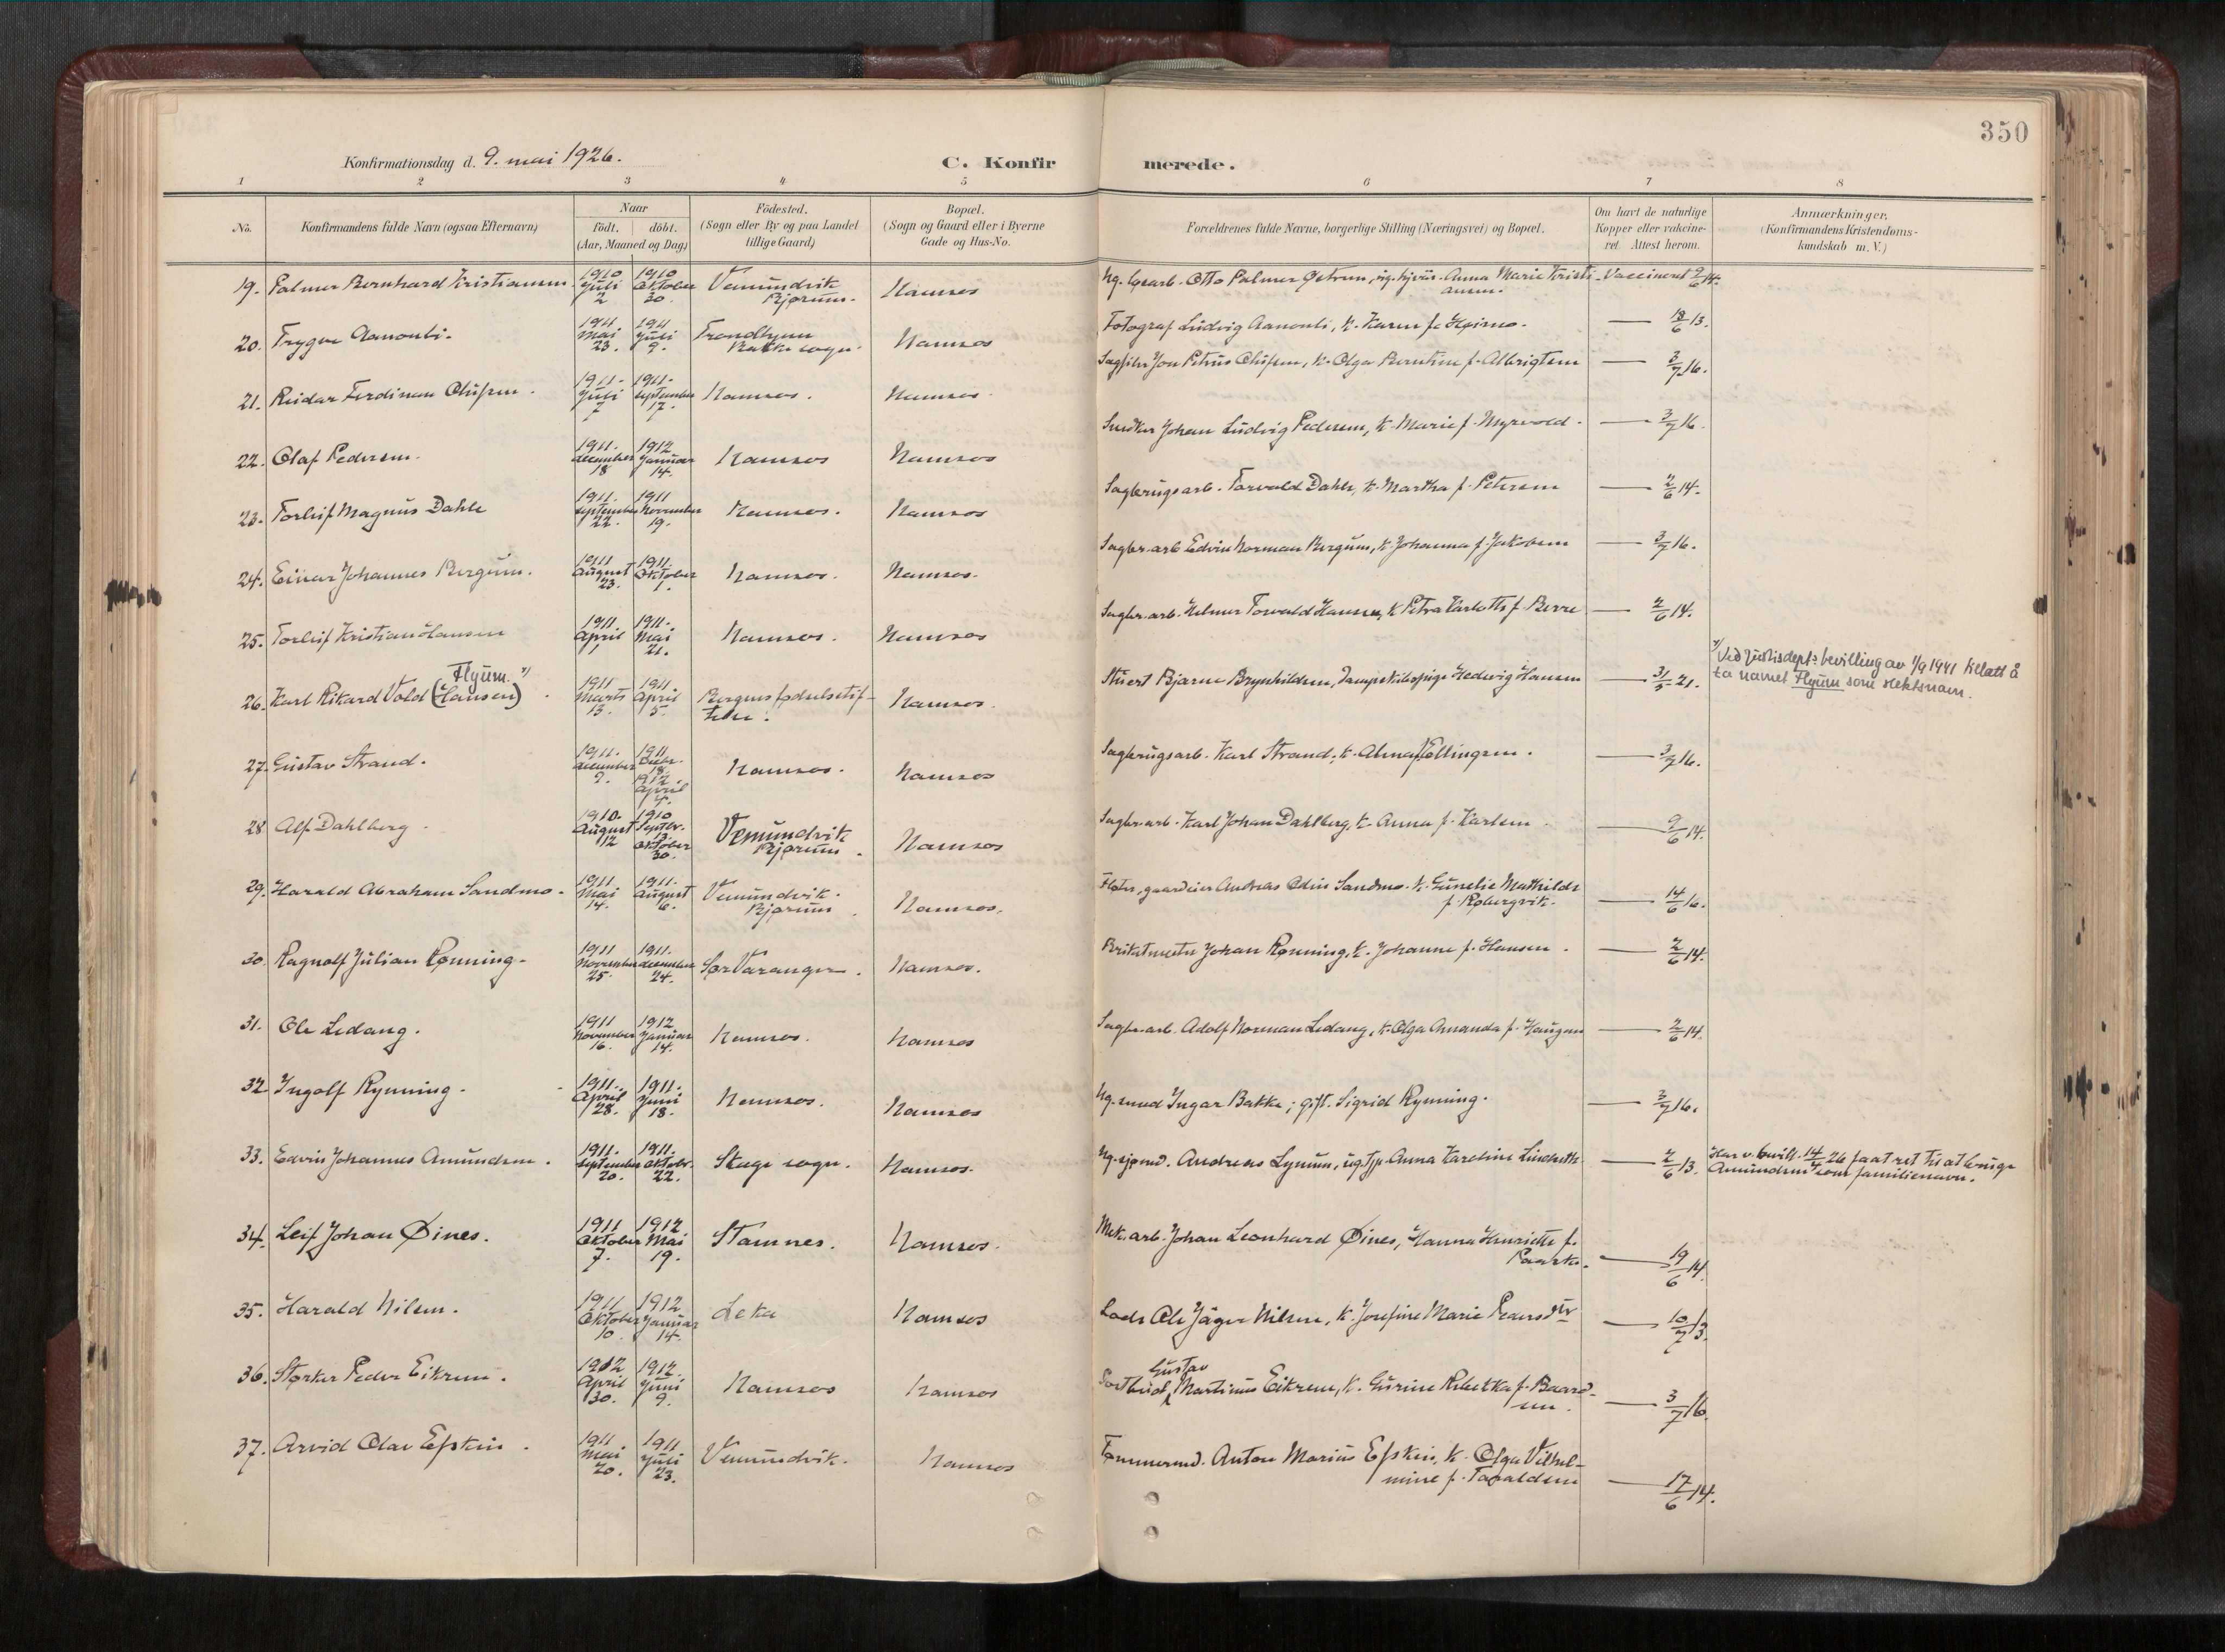 350
Konfirmationsdag d. 9. mai 1926.
C. Konfirmerede.
1 2 3 4 5 6 7 8
No.
Konfirmandens fulde Navn (ogsaa Efternavn)
Naar
födt. döbt.
(Aar, Maaned og Dag)
Födested.
(Sogn eller By og paa Landet
tillige Gaard)
Bopæl.
(Sogn og Gaard eller i Byerne
Gade og Hus-No.
Forældrenes fulde Navne, borgerlige Stilling (Næringsvei) og Bopæl.
Om havt de naturlige
Kopper eller vakcine-
ret. Attest herom.
Anmærkninger.
(Konfirmandens Kristendoms-
kundskab m. V.)
19. Palmer Bernhard Kristiansen 1910 Juli 2 1910 Oktober 30. Vemundvik Bjørum. Namsos Otto Palmer Anna Marie Kristiansen. Vaccineret 2/6 14.
20. Trygve Aamonli. 1911 Mai 23. 1911 Juli 9. Trondhjem Bakke sogn. Namsos Fotograf Ludvig Aamonli, k. Karen f. — 18/6 13.
21. Reidar Ferdinan Olufsen. 1911. Juli 7 1911. September 17. Namsos. Namsos. Jon Petrus Olufsen, k. Olga Berntine f. Albrigtsen — 3/7 16.
22. Olaf Pedersen. 1911. december 18 1912 Januar 14. Namsos Namsos Snedker Johan Ludvig Pedersen, k. Marie f. Myrvold. — 3/7 16.
23. Torleif Magnus Dahle 1911. September 22. 1911 November 19. Namsos. Namsos Sagbrugsarb. Torvald Dahle, k. Martha f. Petersen — 2/6 14.
24. Einar Johannes Bergum. 1911 August 23. 1911. Oktober 1. Namsos. Namsos. Sagbr.arb. Edvin Norman Bergum, k. Johanna f. Jakobsen — 3/7 16.
25. Torleif Kristian Hansen 1911. April 1 1911. Mai 21. Namsos. Namsos Sagbr.arb. Helmer Torvald Hansen, k. Petra Karlotte f. Berre — 2/6 14.
26. Karl Rikard Vold (Hansen) Flyum. x) 1911 Marts 13. 1911 April 5. Bergens fødselsstiftelse. Namsos. Stuert Bjarne Brynhildsen, Hedvig Hansen — 31/5 21.
x) Ved Justisdept.s bevilling av 1/9 1941 tillatt å
ta navnet Flyum som slektsnavn.
27. Gustav Strand. 1911. december 9. 1911. Decbr. 18. 1912. April 7. Namsos. Namsos Sagbrugsarb. Karl Strand, k. Alma f. Ellingsen. — 3/7 16.
28 Alf Dahlberg. 1910. August 12 1910 Septbr. 13. Oktober 30. Vemundvik Bjørum. Namsos Sagbr.arb. Karl Johan Dahlberg, k. Anna f. Karlsen. — 9/6 14.
29. Harald Abraham Sandmo. 1911 Mai 14. 1911. August 6. Vemundvik. Bjørum. Namsos. Fløter, gaardeier Andreas Odin Sandmo. k. Gunelie Mathilde
f. Røbergvik. — 14/6 16.
30. Ragnolf Julian Rønning. 1911 November 25. 1911. december 24. Sør Varanger. Namsos. Johan Rønning, k. Johanne f. Hansen. — 2/6 14.
31. Ole Ledang. 1911 November 16. 1912 Januar 14. Namsos. Namsos Sagbr.arb. Adolf Norman Ledang, k. Olga Amanda f. Haugen — 2/6 14.
32. Ingolf Rynning. 1911. April 28. 1911. Juni 18. Namsos. Namsos Ug. Ingar Bakke; Sigrid Rynning. — 3/7 16.
33. Edvin Johannes Amundsen. 1911. September 20. 1911. Oktobr. 22. Skage sogn. Namsos. Ug. sjømd. Andreas Lynum, Anna Karoline — 2/6 13.
Har v. bevill. 14/4 26 faat ret til at bruge
Amundsen som familienavn.
34. Leif Johan Øines. 1911 Oktober 7. 1912. Mai 19. Stamnes. Namsos. Mek. arb. Johan Leonhard Øines, Hanna Henriette f.
— 19/6 14.
35. Harald Nilsen. 1911 Oktober 10. 1912. Januar 14. Leka Namsos Lods Ole Jäger Nilsen, k. Josefine Marie — 10/7 13.
36. Størker Peder Eikrem. 1912 April 30. 1912. Juni 9. Namsos Namsos Postbud Gustav Martinus Eikrem, k. Gurine Rebekka f. Baard-
sen. — 3/7 16.
37. Arvid Olav Espkin. 1911 Mai 20. 1911 Juli 23. Vemundvik. Namsos Tømmermd. Anton Marius k. Olga Vilhel-
mine f. — 17/6 14.